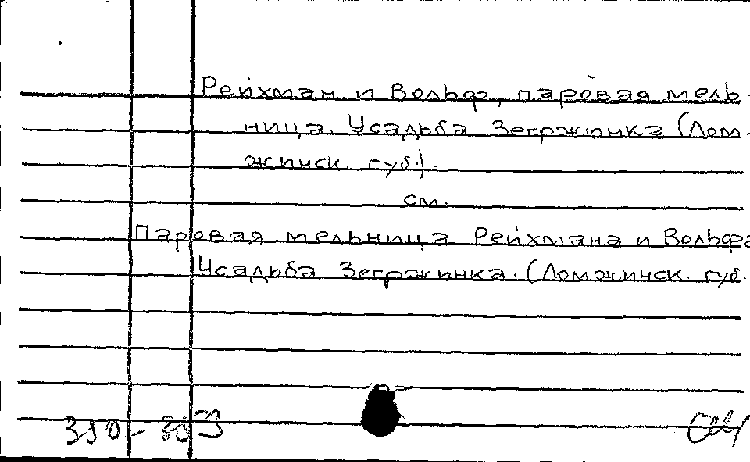 Рейхман и Вольф, паровая мель-
ница. Усадьба Зегржинка (Лом-
жинск. губ).
см.
Паровая мельница Рейхмана и Вольфа
Усадьба Зегржинка. (Ломжинск. губ.